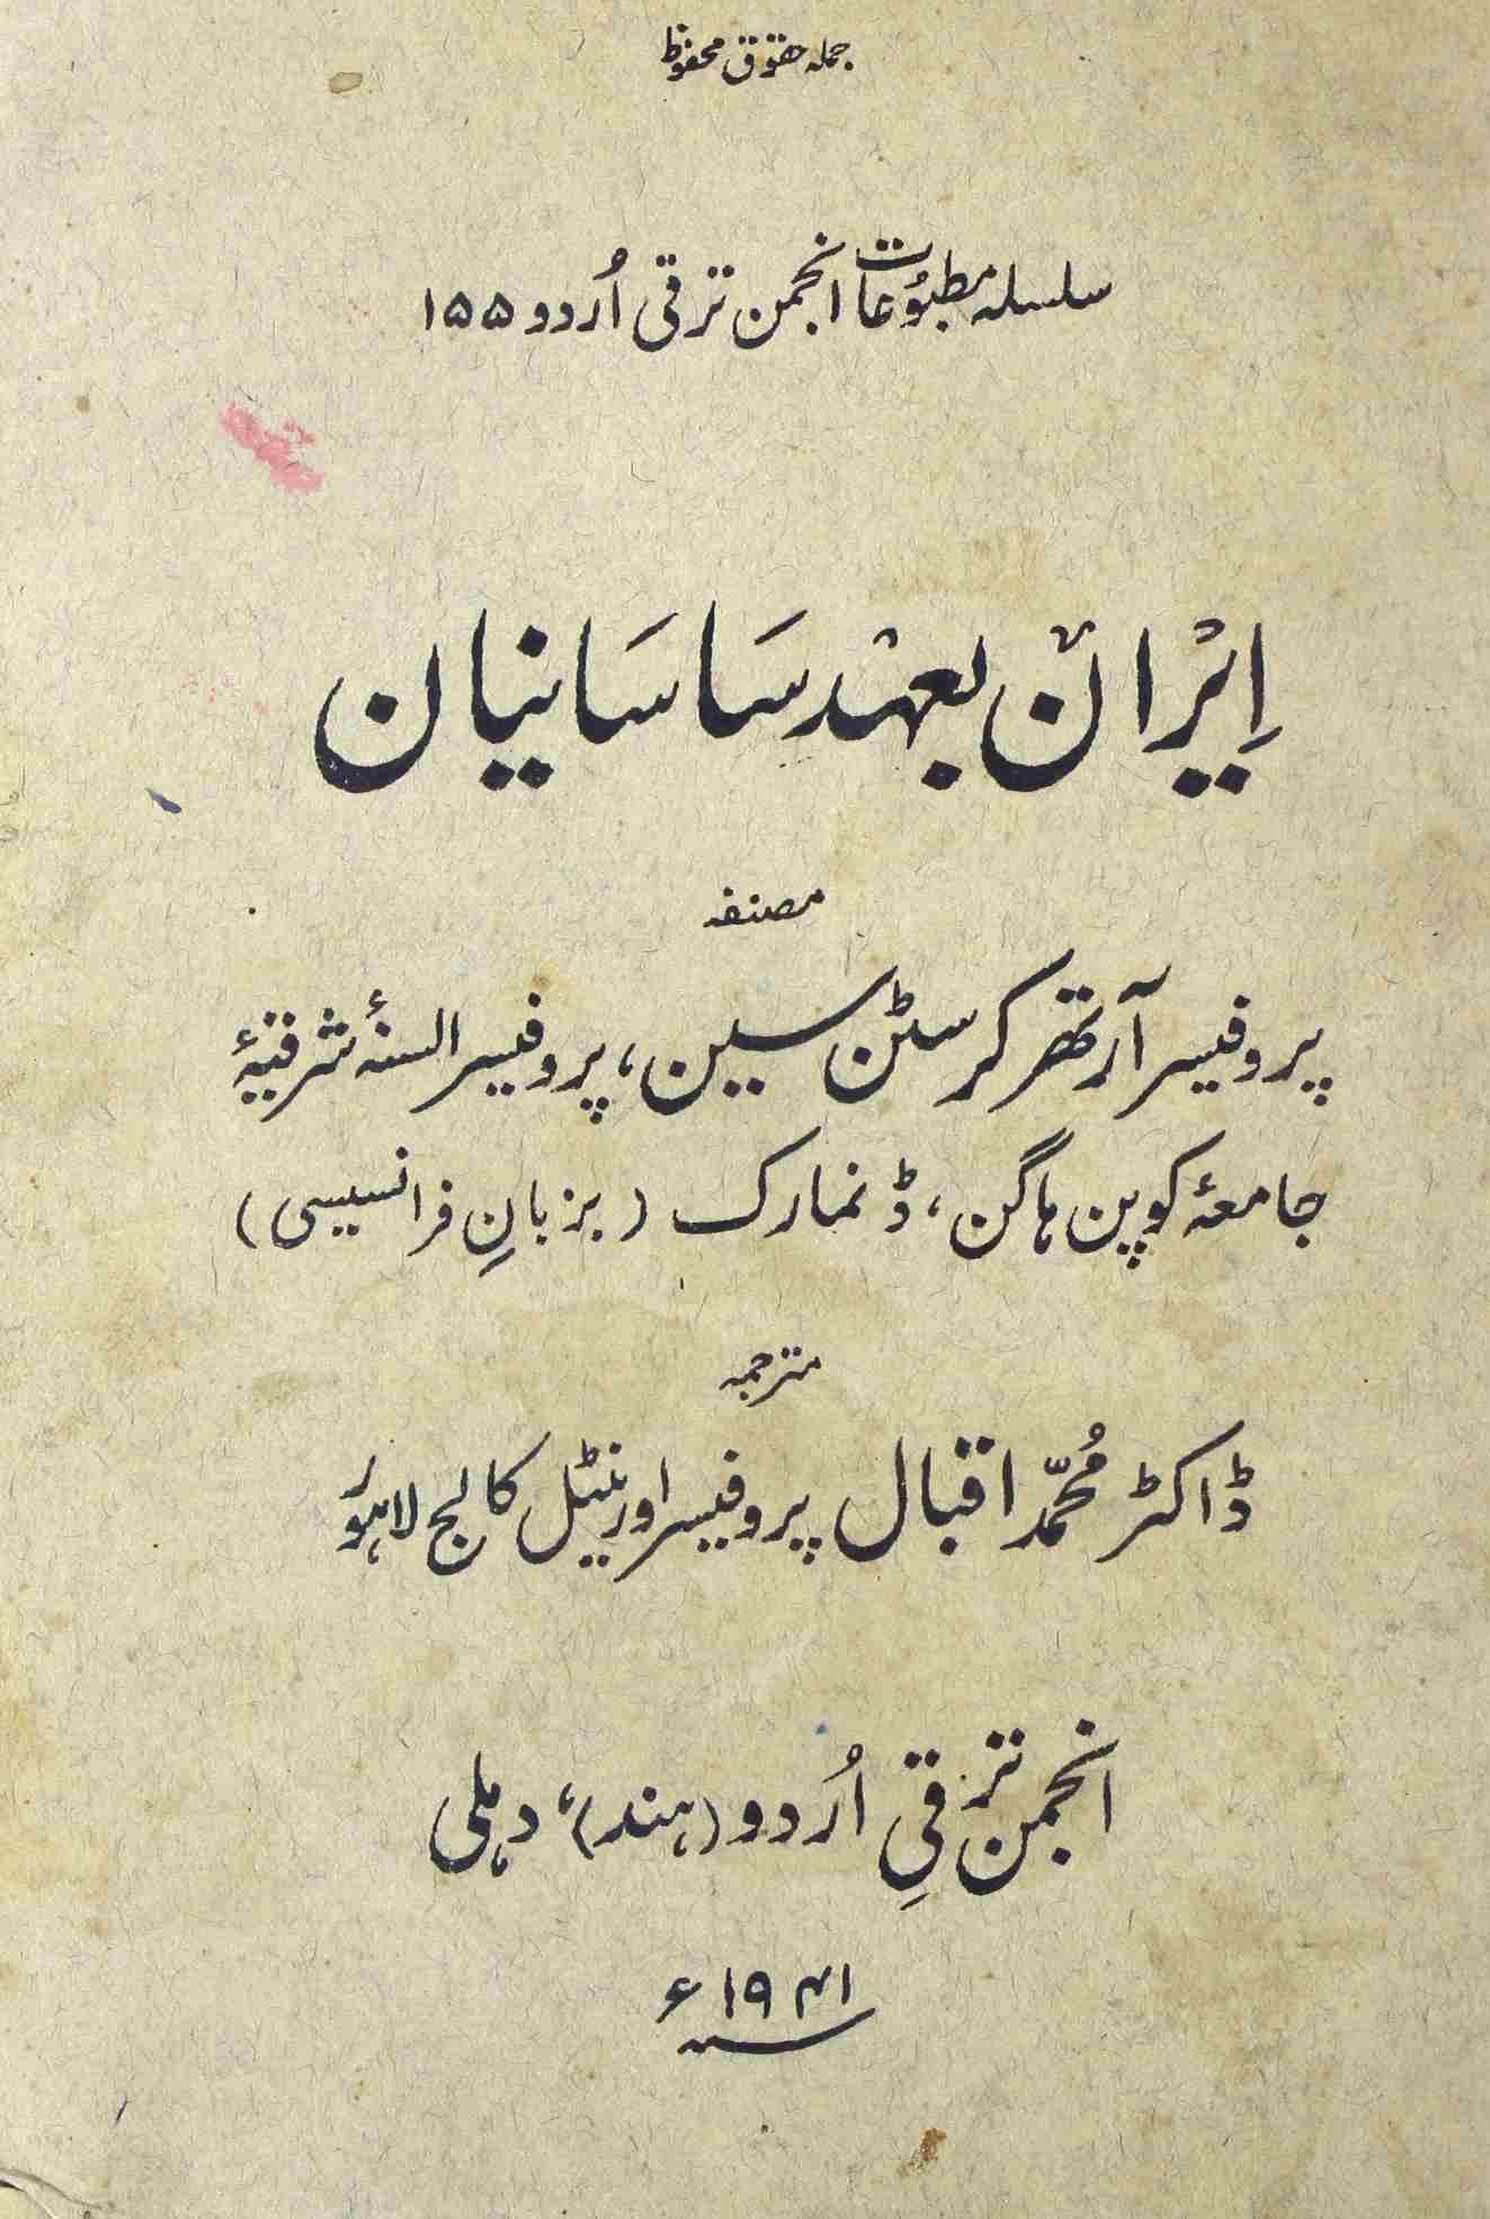 جملہ حقوق محفوظ
سلسلہ مطبوُعات انجمن ترقی اُردو ۱۵۵
اِیْران بعہْد سَاسَانیان
مصنفہ
پروفیسر آرتھر کرسٹن سین، پروفیسر السنۂ شرقیۂ
جامعۂ کوپن ہاگن، ڈنمارک (بزبانِ فرانسیسی)
مترجمہ
ڈاکٹر مُحمّد اقبال پروفیسر اورینٹل کالج لاہور
انجمن ترقیِ اُردو (ہند)، دہلی
۱۹۴۱ء